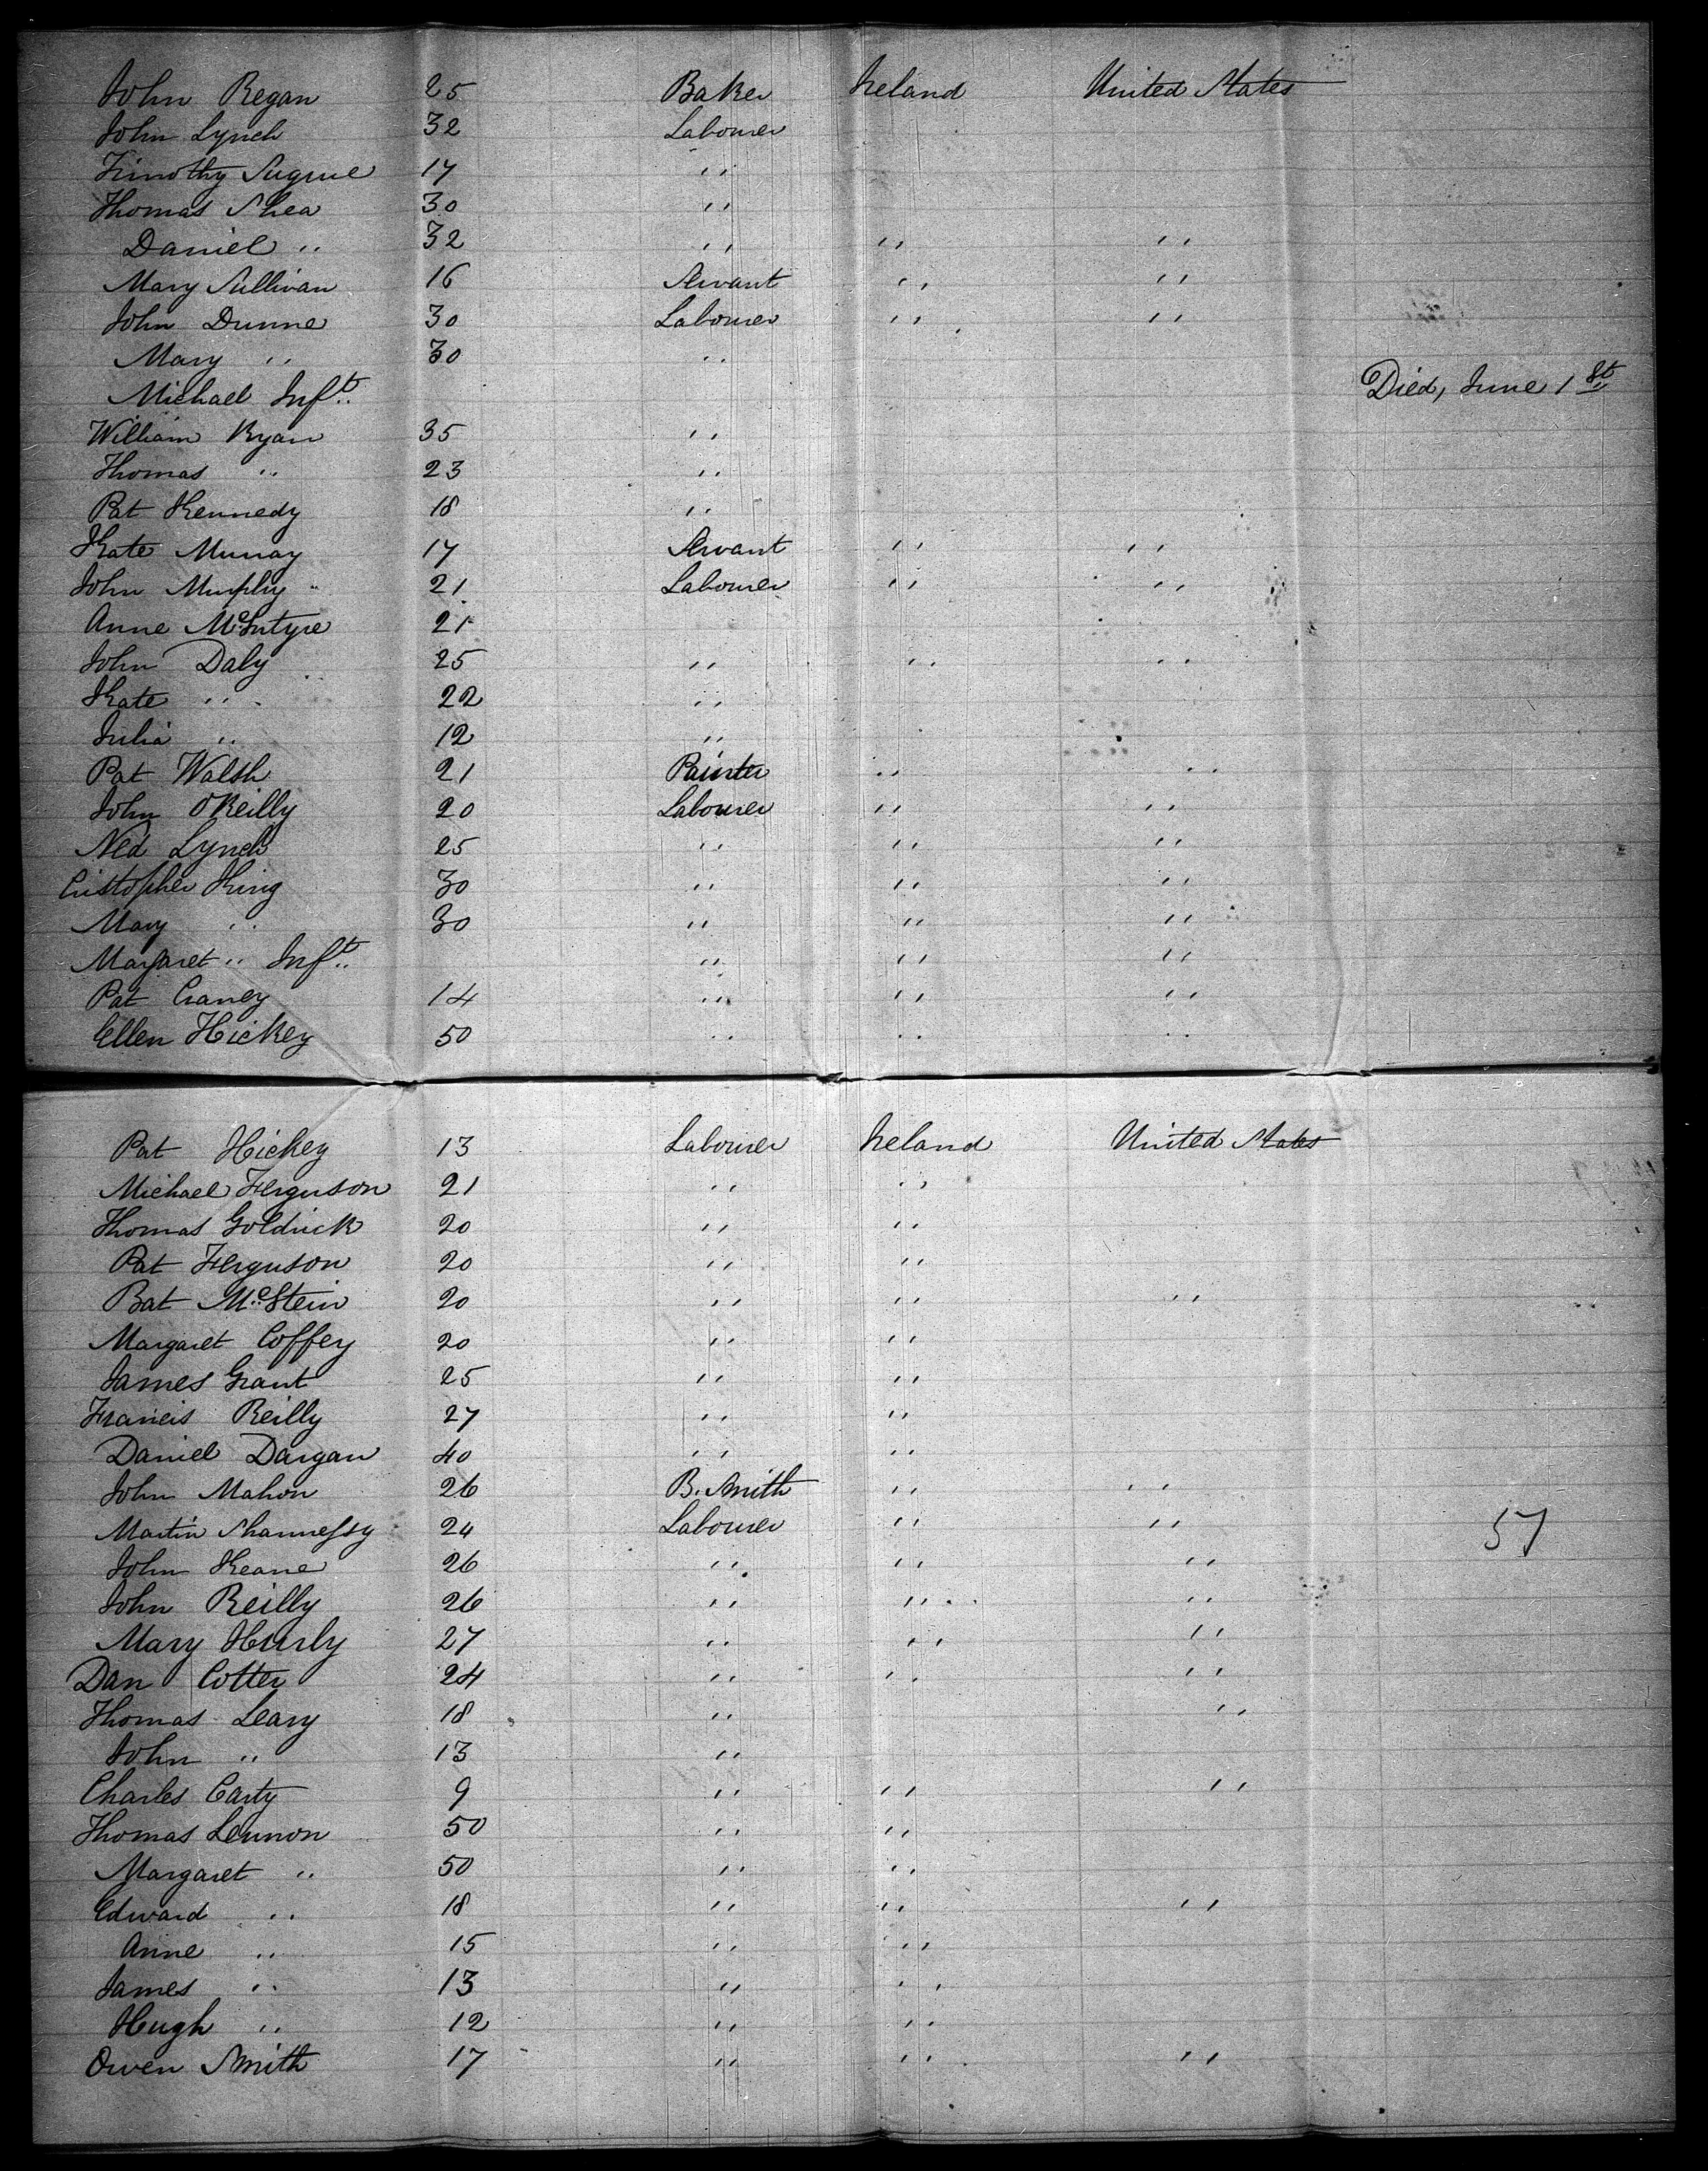 John Regan 25 Baker Ireland United States
John Lynch 32 Labourer
Timothy Sugrue 17 " 
Thomas Shea 30 "
Daniel " 32 " " "
Mary Sullivan 16 Servant " "
John Dunne 30 Labourer " "
Mary " 30 "
Michael Inft. Died, June 1st
William Ryan 35 "
Thomas " 23 "
Pat Kennedy 18 "
Kate Murray 17 Servant " "
John Murphy 21 Labourer " "
Anne McIntyre 21
John Daly 25 " " "
Kate " 22 "
Julia " 12 "
Pat Walsh 21 Painter " "
John O'Reilly 20 Labourer " "
Ned Lynch 25 " " "
Cristopher King 30 " " "
Mary " 30 " " "
Margaret " Inft. " " "
Pat Craney 14 " " "
Ellen Hickey 50 " " "
Pat Hickey 13 Labourer Ireland United States
Michael Ferguson 21 " "
Thomas Goldrick 20 " "
Pat Ferguson 20 " "
Bat Mc.Stein 20 " " "
Margaret Coffey 20 " "
James Grant 25 " "
Francis Reilly 27 " "
Daniel Dargan 40 " "
John Mahon 26 B. Smith " "
Martin Shannessy 24 Labourer " " 57
John Keane 26 " " "
John Reilly 26 " " "
Mary Hurly 27 " " "
Dan Cotter 24 " " "
Thomas Leary 18 " "
John " 13 "
Charles Carty 9 " " "
Thomas Lennon 50 " "
Margaret " 50 " "
Edward " 18 " " "
Anne " 15 " "
James " 13 " "
Hugh " 12 " "
Owen Smith 17 " " "